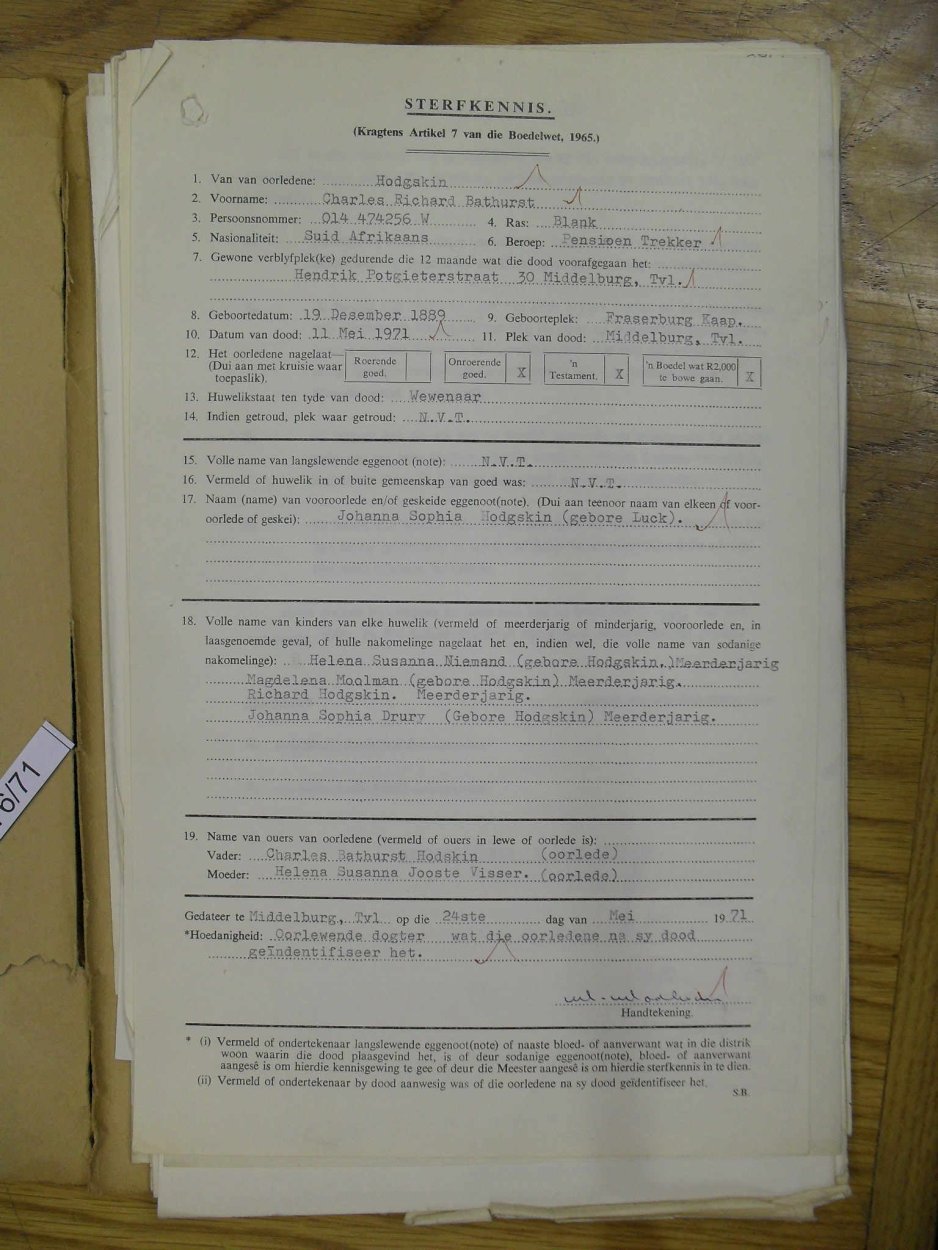 STERFKENNIS.
(Kragtens Artikel 7 van die Boedelwet, 1965.)
1. Van van oorledene: Hodgskin
2. Voorname: Charles Richard Bathurst
3. Persoonsnommer: 014 474256 W 4. Ras: Blank
5. Nasionaliteit: Suid Afrikaans 6. Beroep: Pensioen Trekker
7. Gewone verblyfplek(ke) gedurende die 12 maande wat die dood voorafgegaan het:
Hendrik Potgieterstraat 30 Middelburg, Tvl.
8. Geboortedatum: 19 Desember 1889 9. Geboorteplek: Fraserburg Kaap.
10. Datum van dood: 11 Mei 1971 11. Plek van dood: Middelburg, Tvl.
12. Het oorledene nagelaat— Roerende Onroerende 'n 'n Boedel wat R2,000
(Dui aan met kruisie waar goed. goed. X Testament. X te bowe gaan. X
toepaslik).
13. Huwelikstaat ten tyde van dood: Wewenaar
14. Indien getroud, plek waar getroud: N.V.T.
15. Volle name van langslewende eggenoot (note): N.V.T.
16. Vermeld of huwelik in of buite gemeenskap van goed was: N.V.T.
17. Naam (name) van vooroorlede en/of geskeide eggenoot(note). (Dui aan teenoor naam van elkeen of voor-
oorlede of geskei): Johanna Sophia Hodgskin (gebore Luck).
18. Volle name van kinders van elke huwelik (vermeld of meerderjarig of minderjarig, vooroorlede en, in
laasgenoemde geval, of hulle nakomelinge nagelaat het en, indien wel, die volle name van sodanige
nakomelinge): Helena Susanna Niemand (gebore Hodgskin.)Meerderjarig
Magdelena Moolman (gebore Hodgskin) Meerderjarig.
Richard Hodgskin. Meerderjarig.
Johanna Sophia Drury (Gebore Hodgskin) Meerderjarig.
19. Name van ouers van oorledene (vermeld of ouers in lewe of oorlede is):
Vader: Charles Bathurst Hodskin (oorlede)
Moeder: Helena Susanna Jooste Visser. (oorlede)
Gedateer te Middelburg, Tvl op die 24ste dag van Mei 1971
*Hoedanigheid: Oorlewende dogter wat die oorledene na sy dood
geïndentifiseer het.
Handtekening.
* (i) Vermeld of ondertekenaar langslewende eggenoot(note) of naaste bloed- of aanverwant wat in die distrik
woon waarin die dood plaasgevind het, is of deur sodanige eggenoot(note), bloed- of aanverwant
aangesê is om hierdie kennisgewing te gee of deur die Meester aangesê is om hierdie sterfkennis in te dien.
(ii) Vermeld of ondertekenaar by dood aanwesig was of die oorledene na sy dood geïdentifiseer het.
S.B.
6/71